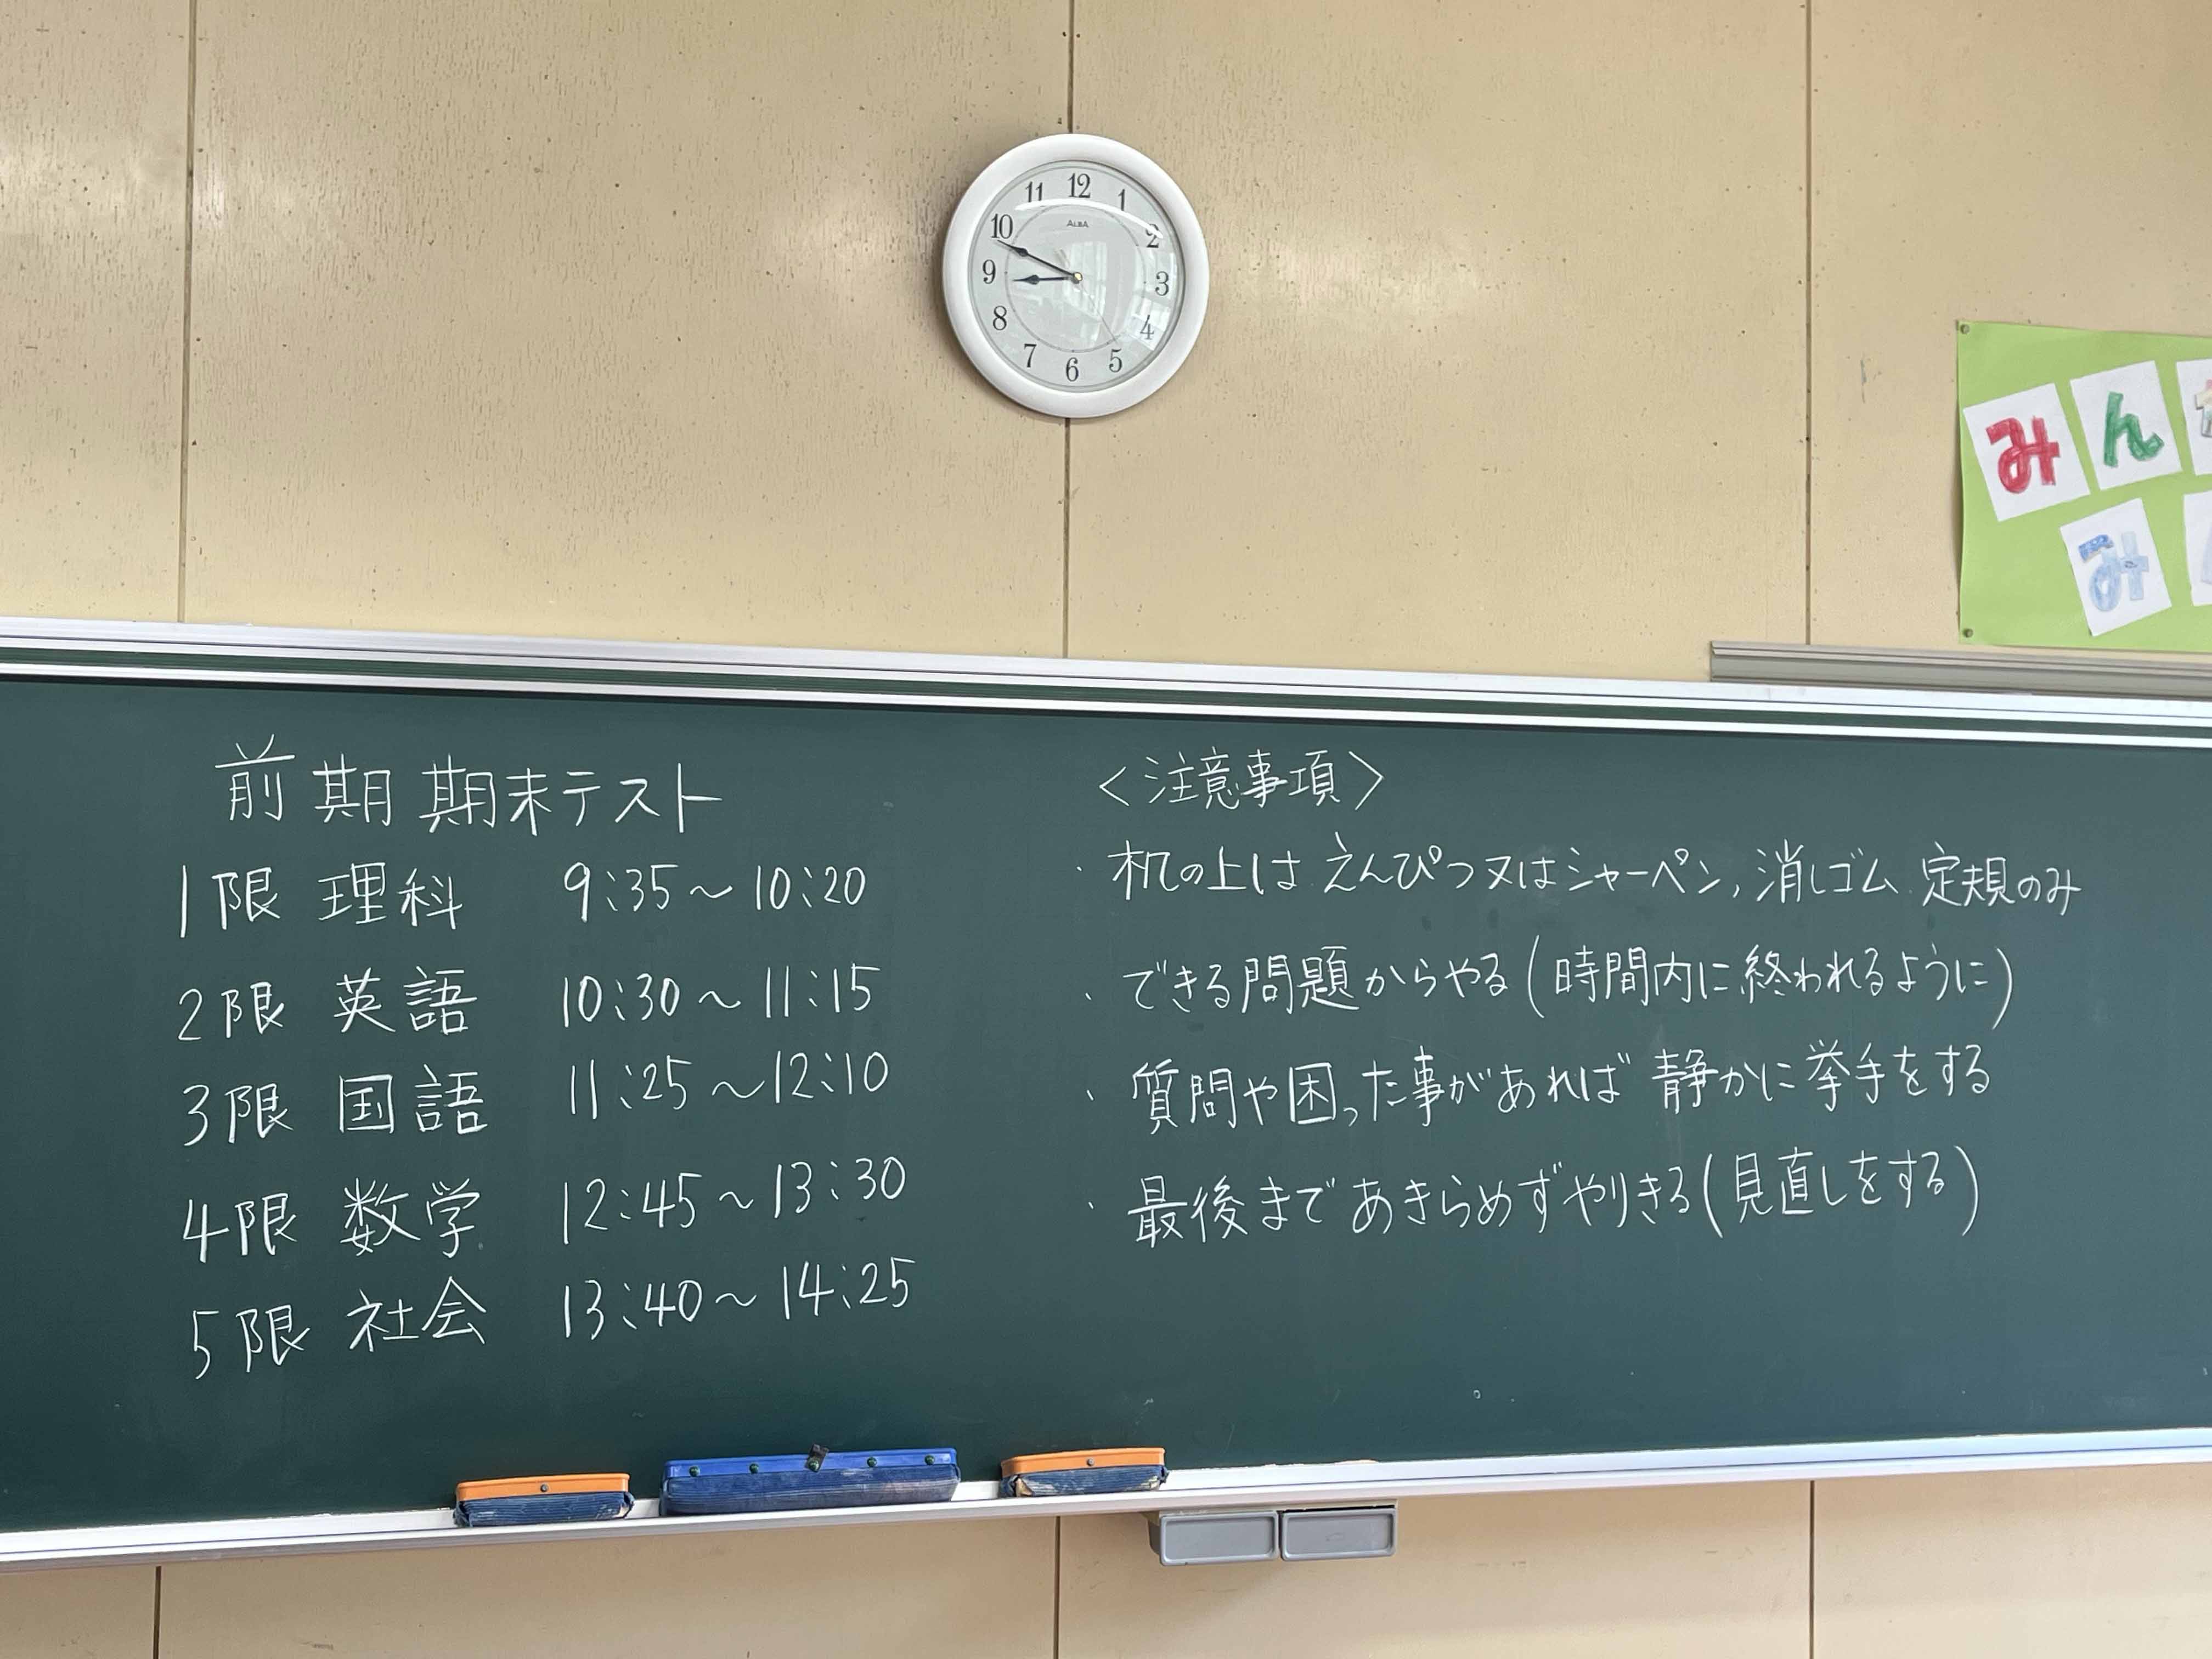 12
11
1
10
ALBA
2
9
3
8
4
7
5
6
みん
み
前期期末テスト
1限 理科 9:35～10:20
2限 英語 10:30～11:15
3限 国語 11:25～12:10
4限 数学 12:45～13:30
5限 社会 13:40～14:25
<注意事項>
・机の上は えんぴつ又はシャーペン, 消しゴム 定規のみ
・できる問題からやる(時間内に終われるように)
・質問や困った事があれば 静かに挙手をする
・最後まで あきらめずやりきる(見直しをする)